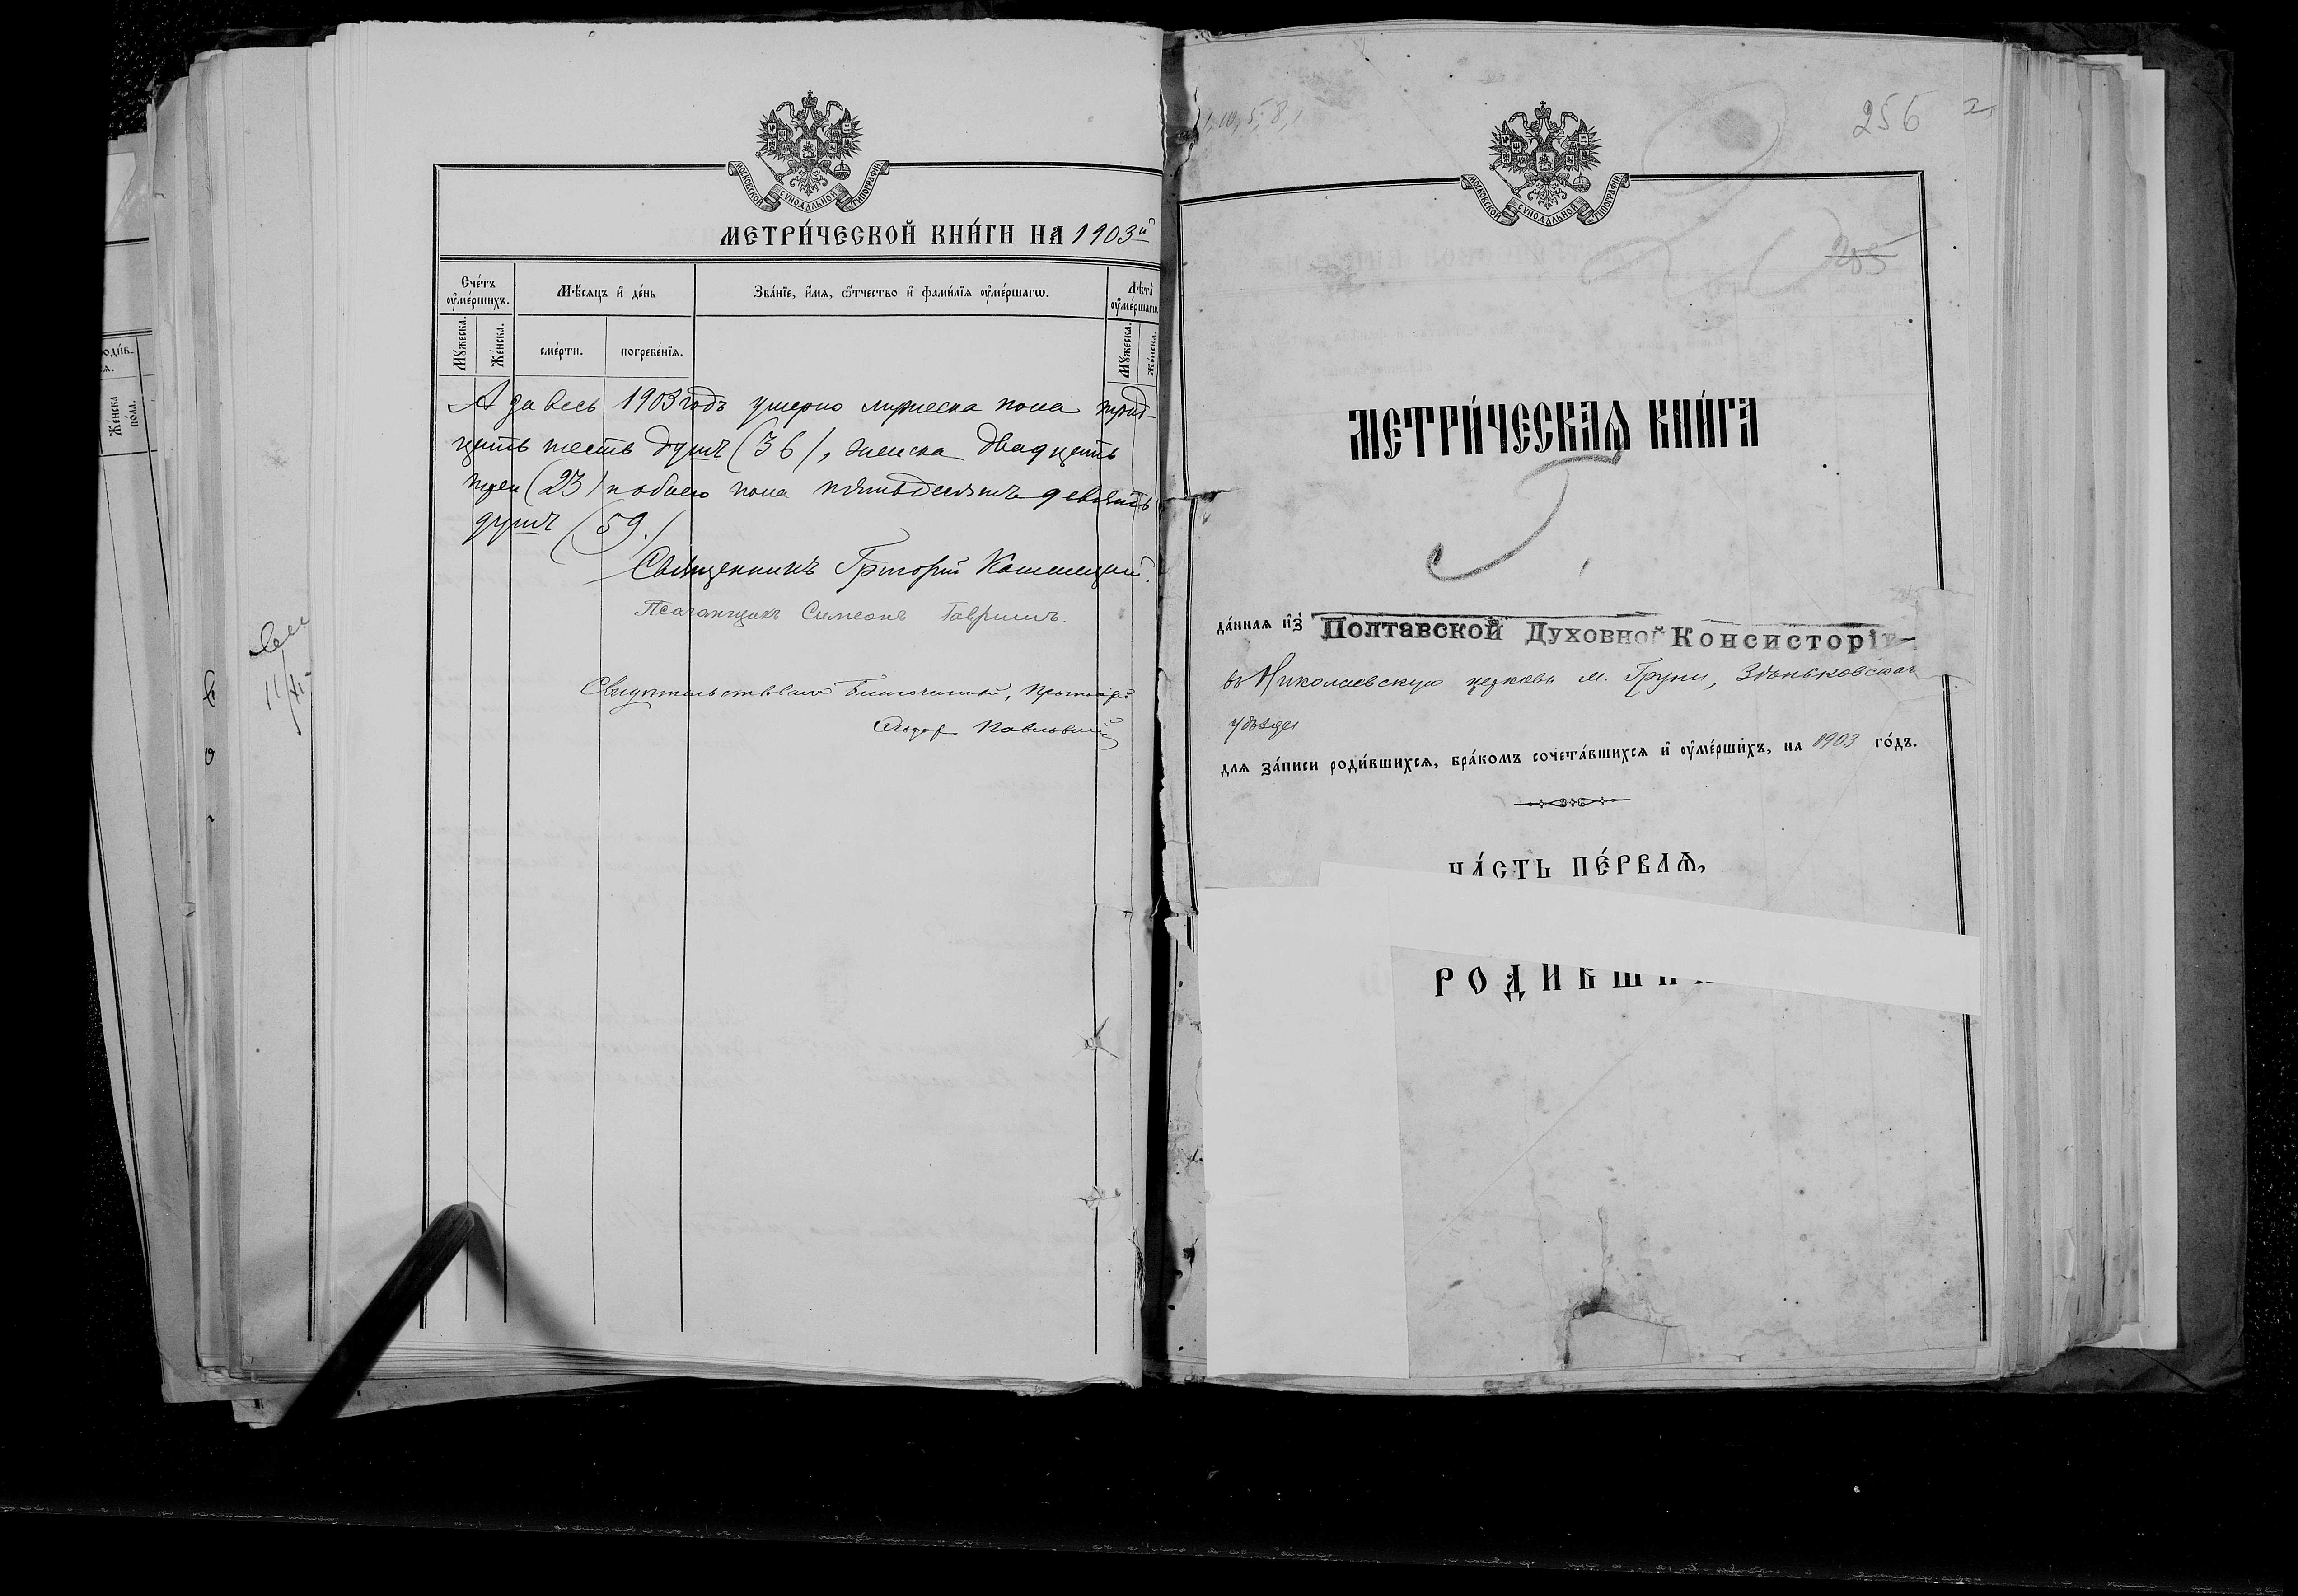 МОСКОВСКОЙ СѴНОДАЛЬНОЙ ТИПОГРАФІИ
МЕТРИ́ЧЕСКОЙ КНИ́ГИ НА 1903й
Сче́тъ оу҆ме́ршихъ.
Мѣ́сяцъ и҆ де́нь
Зва́нїе, и҆́мя, ѻ҆́тчество и҆ фами́лїя оу҆ме́ршагѡ.
Лѣта̀ оу҆ме́ршагѡ.
Мꙋ́жеска.
Же́нска.
сме́рти.
погребе́нїя.
Мꙋ́жеска.
Же́нска.
А за весь 1903 годъ умерло мужеска пола трид-
цать шесть душъ (36), женска двадцать
три (23) и обоего пола пятьдесятъ девять
душъ (59.)
Священникъ Григорій
Псаломщикъ Симеонъ Гавришъ.
Свидѣтельствовалъ Благочинный, Протоіерей
Же́нска по́ла.
256
МОСКОВСКОЙ СѴНОДАЛЬНОЙ ТИПОГРАФІИ
255
МЕТРИ́ЧЕСКАѦ КНИ́ГА
да́нная и҆з̾ Полтавской Духовной Консисторіи
въ Николаевскую церковь м. Груни, Зѣньковскаго
уѣзда
для за́писи роди́вшихся, бра́комъ сочета́вшихся и҆ оу҆ме́ршихъ, на 1903 го́дъ.
ЧА́СТЬ ПЕ́РВАѦ,
РОДИВШИ